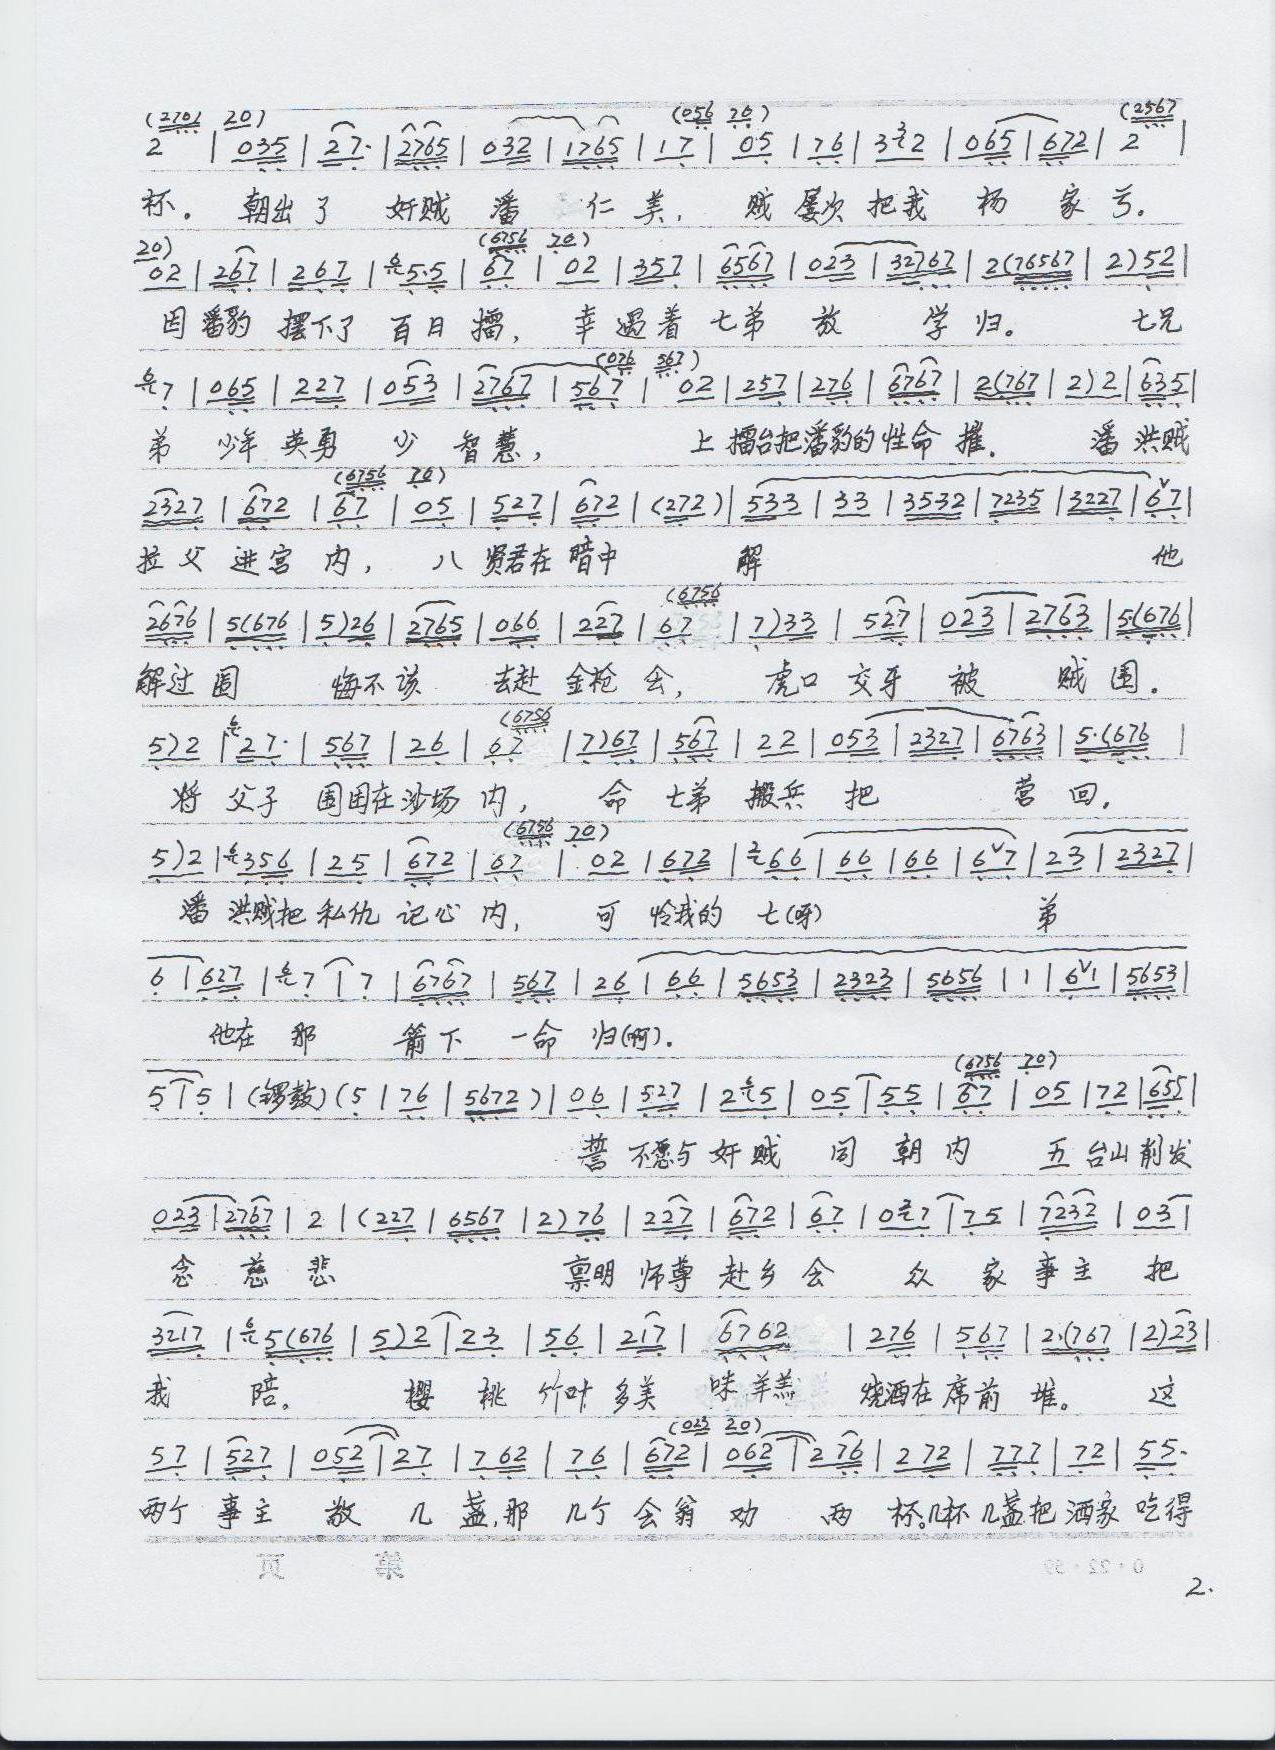 (2701 20)
2 | 035 | 27· | 2765 | 032 | 1765 | 17 | (056 20) 05 | 76 | 3 2 | 065 | 672 | 2 (2567 |
杯。 朝出了 奸贼 潘 仁 美, 贼 屡次 把我 杨 家 亏。
20) 02 | 267 | 267 | 5·5 | 67 (6756 | 20) 02 | 357 | 6567 | 023 | 32767 | 2(76567 | 2)52 |
因 潘豹 摆下了 百日 擂, 幸 遇着 七弟 放 学 归。 七兄
7 | 065 | 227 | 053 | 2767 | 567 (076 | 567) 02 | 257 | 276 | 6767 | 2(767 | 2)2 | 635 |
弟 少年 英勇 少 智慧, 上 擂台把潘豹的性命 摧. 潘 洪贼
2327 | 672 | 67 (6756 | 20) 05 | 527 | 672 | (272) | 533 | 33 | 3532 | 7235 | 3227 | 6 7 |
拉父 进宫 内, 八 贤君在 暗中 解 他
2676 | 5(676 | 5)26 | 2765 | 066 | 227 | 67 (6756 | 7)33 | 527 | 023 | 2763 | 5·(676 |
解过 围 悔不该 去赴 金枪 会, 虎口 交牙 被 贼 围.
5)2 | 27· | 567 | 26 | 67 (6756 | 7)67 | 567 | 22 | 053 | 2327 | 6763 | 5·(676 |
将 父子 围困在沙场 内, 命 七弟 搬兵 把 营 回.
5)2 | 356 | 25 | 672 | 67 (6756 | 20) 02 | 672 | 66 | 66 | 66 | 6 7 | 23 | 2327 |
潘 洪贼把 私仇 记心 内, 可 怜我的 七(呀) 弟
6 | 627 | 7 | 7 | 6767 | 567 | 26 | 66 | 5653 | 2323 | 5656 | 1 | 6 1 | 5653 |
他在 那 箭下 一命 归(啊).
5 | 5 | (锣鼓)(5 | 76 | 5672) | 06 | 527 | 2 5 | 05 | 55 | 67 (6756 | 20) 05 | 72 | 655 |
誓 不愿与 奸贼 同 朝 内 五 台山 前发
023 | 2767 | 2 | (227 | 6567 | 2)76 | 227 | 672 | 67 | 0 7 | 75 | 7232 | 03 |
念 慈 悲 禀明 师尊 赴乡 会 众 家 事主 把
3217 | 5(676 | 5)2 | 23 | 56 | 217 | 6762 | 276 | 567 | 2·(767 | 2)23 |
我 陪。 樱 桃 竹叶 多美 味 羊羔 烧酒在 席前 堆。 这
57 | 527 | 052 | 27 | 762 | 76 | 672 (023 | 20) 062 | 276 | 272 | 777 | 72 | 55·
两个 事主 敬 几 盏,那 几个 会翁 劝 两 杯。几杯 几盏把 洒家 吃得
第 页
2.